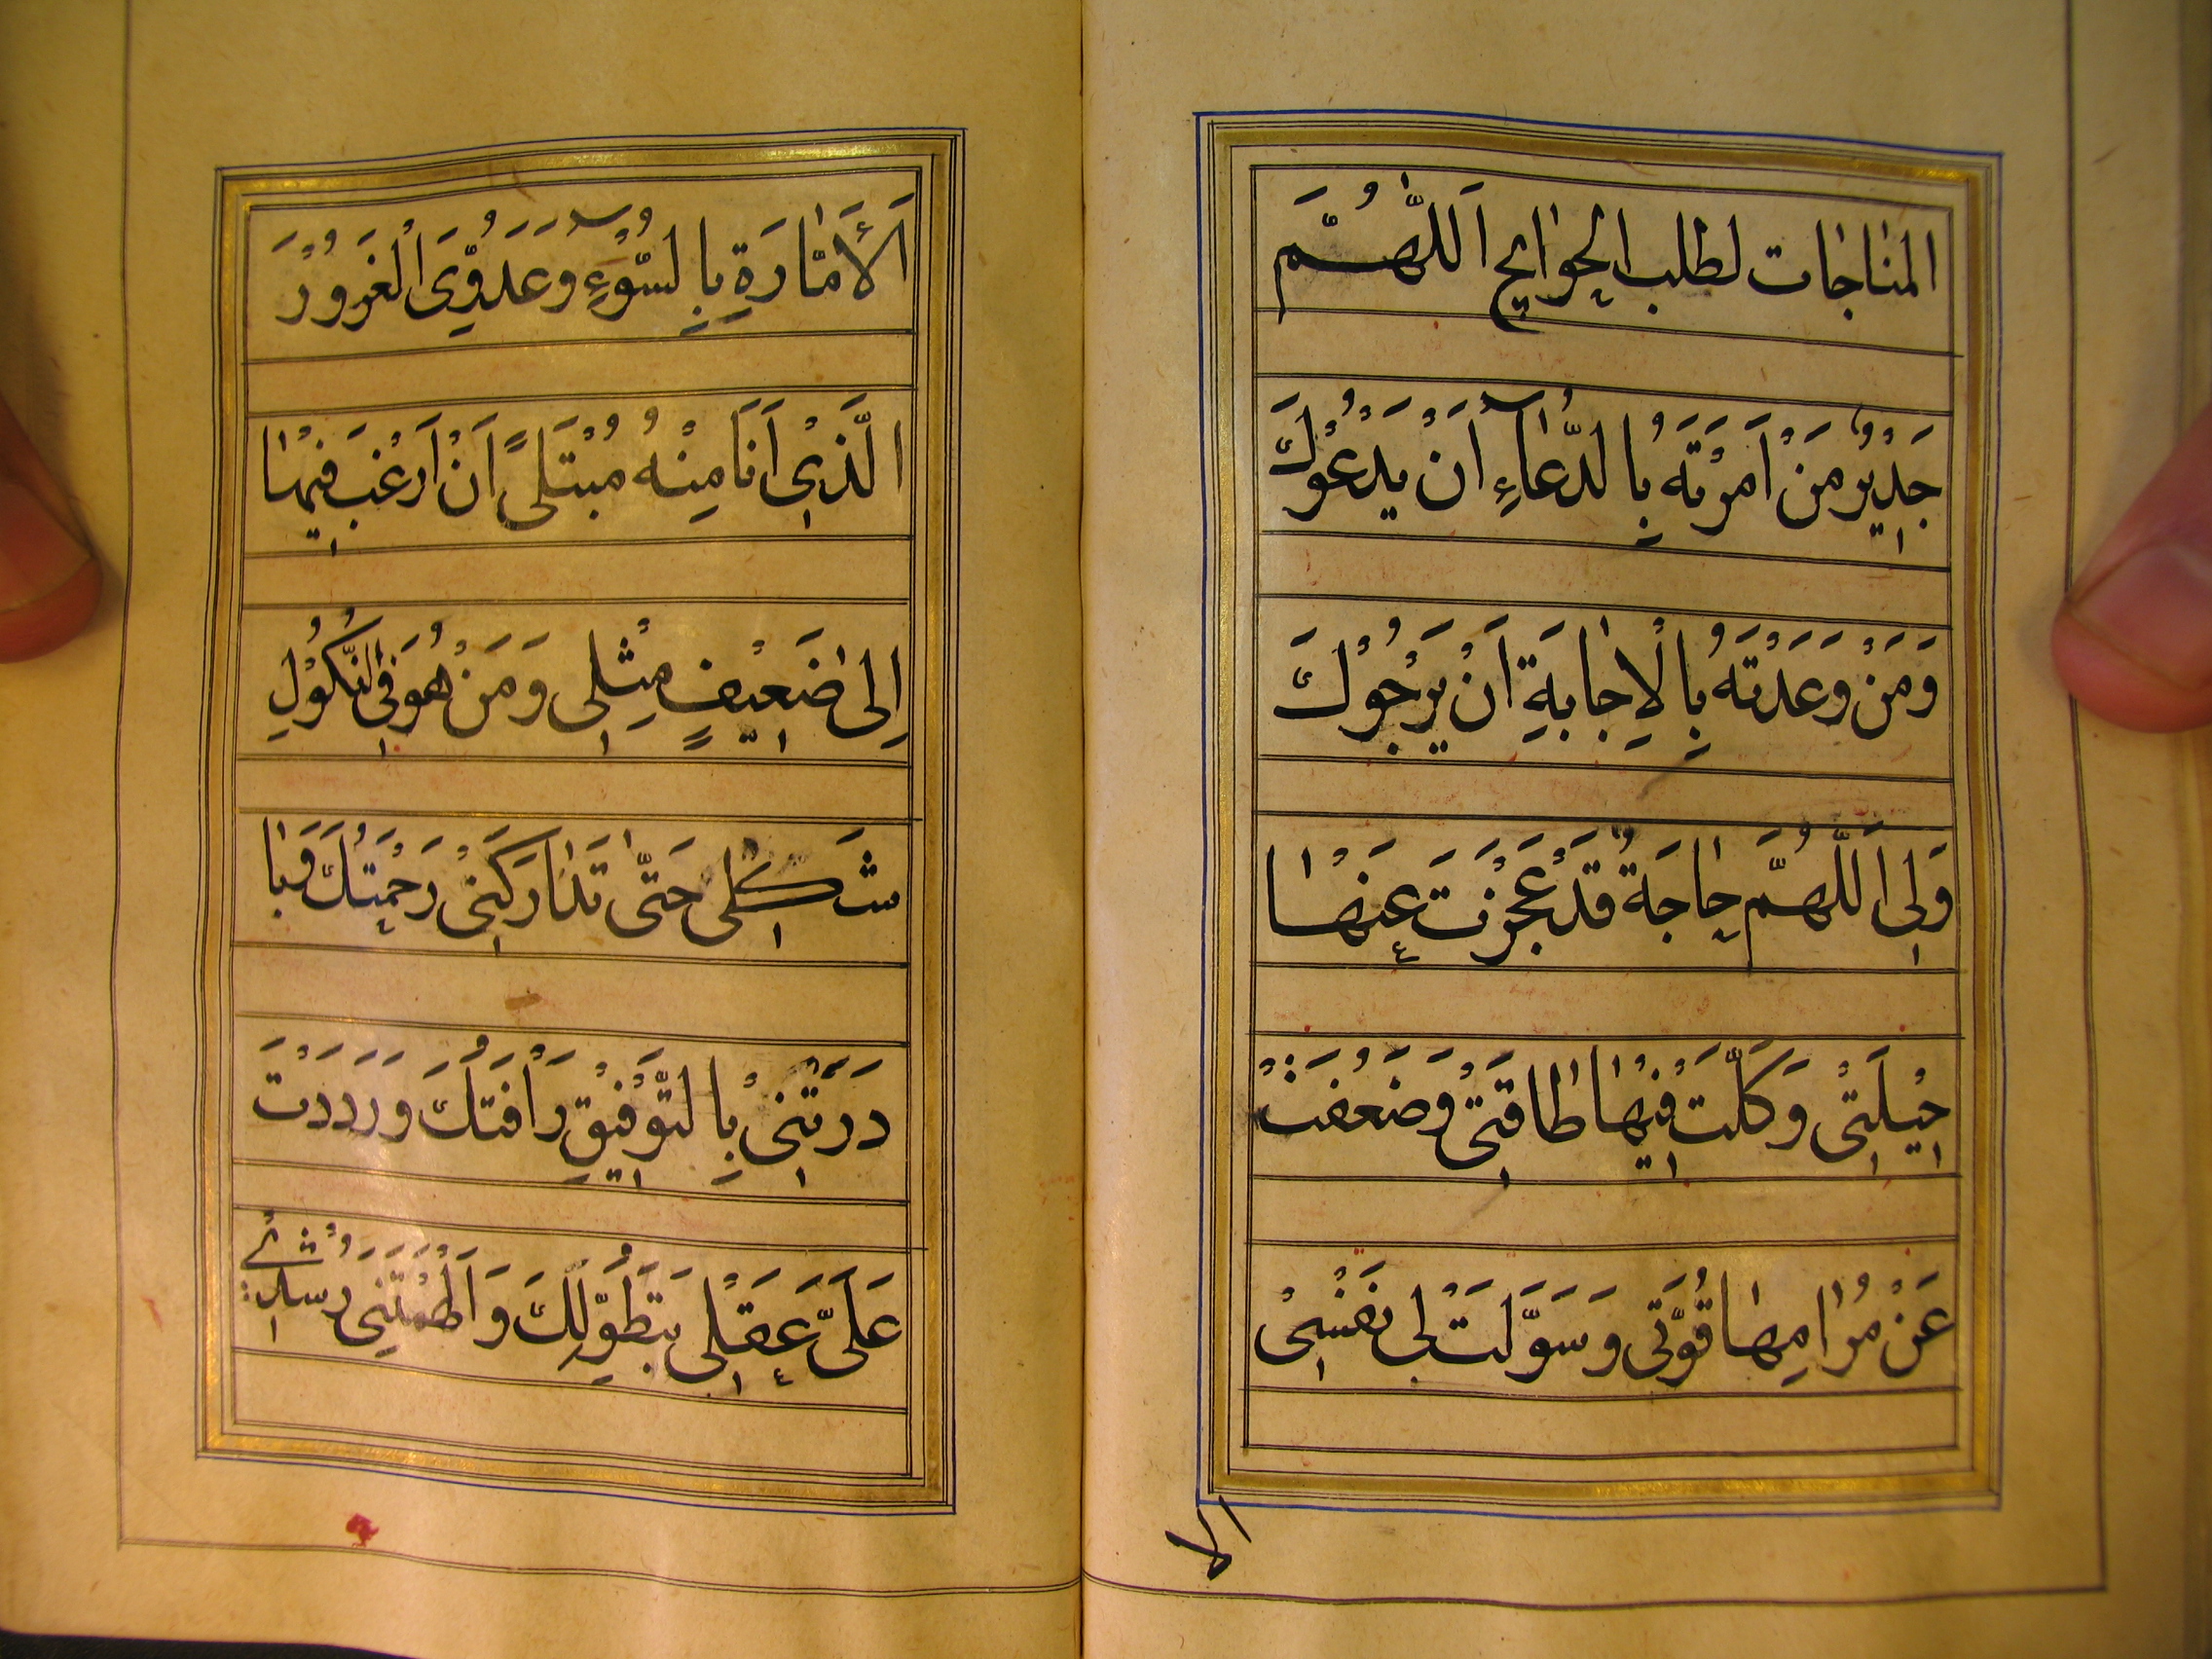 المناجات لطلب الحوائج اَللّٰهُمَّ
جَدِيْرٌ مَنْ اَمَرْتَهُ بِالدُّعَاءِ اَنْ يَدْعُوْكَ
وَمَنْ وَعَدْتَهُ بِالْاِجَابَةِ اَنْ يَرْجُوْكَ
وَلِىَ اللّٰهُمَّ حَاجَةٌ قَدْ عَجَزَتْ عَنْهَا
حِيْلَتِىْ وَكَلَّتْ فِيْهَا طَاقَتِىْ وَضَعُفَتْ
عَنْ مُرَامِهَا قُوَّتِى وَسَوَّلَتْ لِى نَفْسِىْ
الا
اَلْاَمَّارَةِ بِالسُّوْءِ وَعَدُوِّىَ الْغَرُوْرُ
الَّذِىْ اَنَا مِنْهُ مُبْتَلًى اَنْ اَرْغَبَ فِيْهَا
اِلىٰ ضَعِيْفٍ مِثْلِى وَمَنْ هُوَ فِى النُّكُوْلِ
شَكْلِى حَتّٰى تَدَارَكَتْنِىْ رَحْمَتُكَ وَبَا
دَرَتْنِىْ بِالتَّوْفِيْقِ رَاْفَتُكَ وَرَدَدْتَ
عَلَىَّ عَقْلِى بِتَطَوُّلِكَ وَاَلْهَمْتَنِى رُشْدِىْ